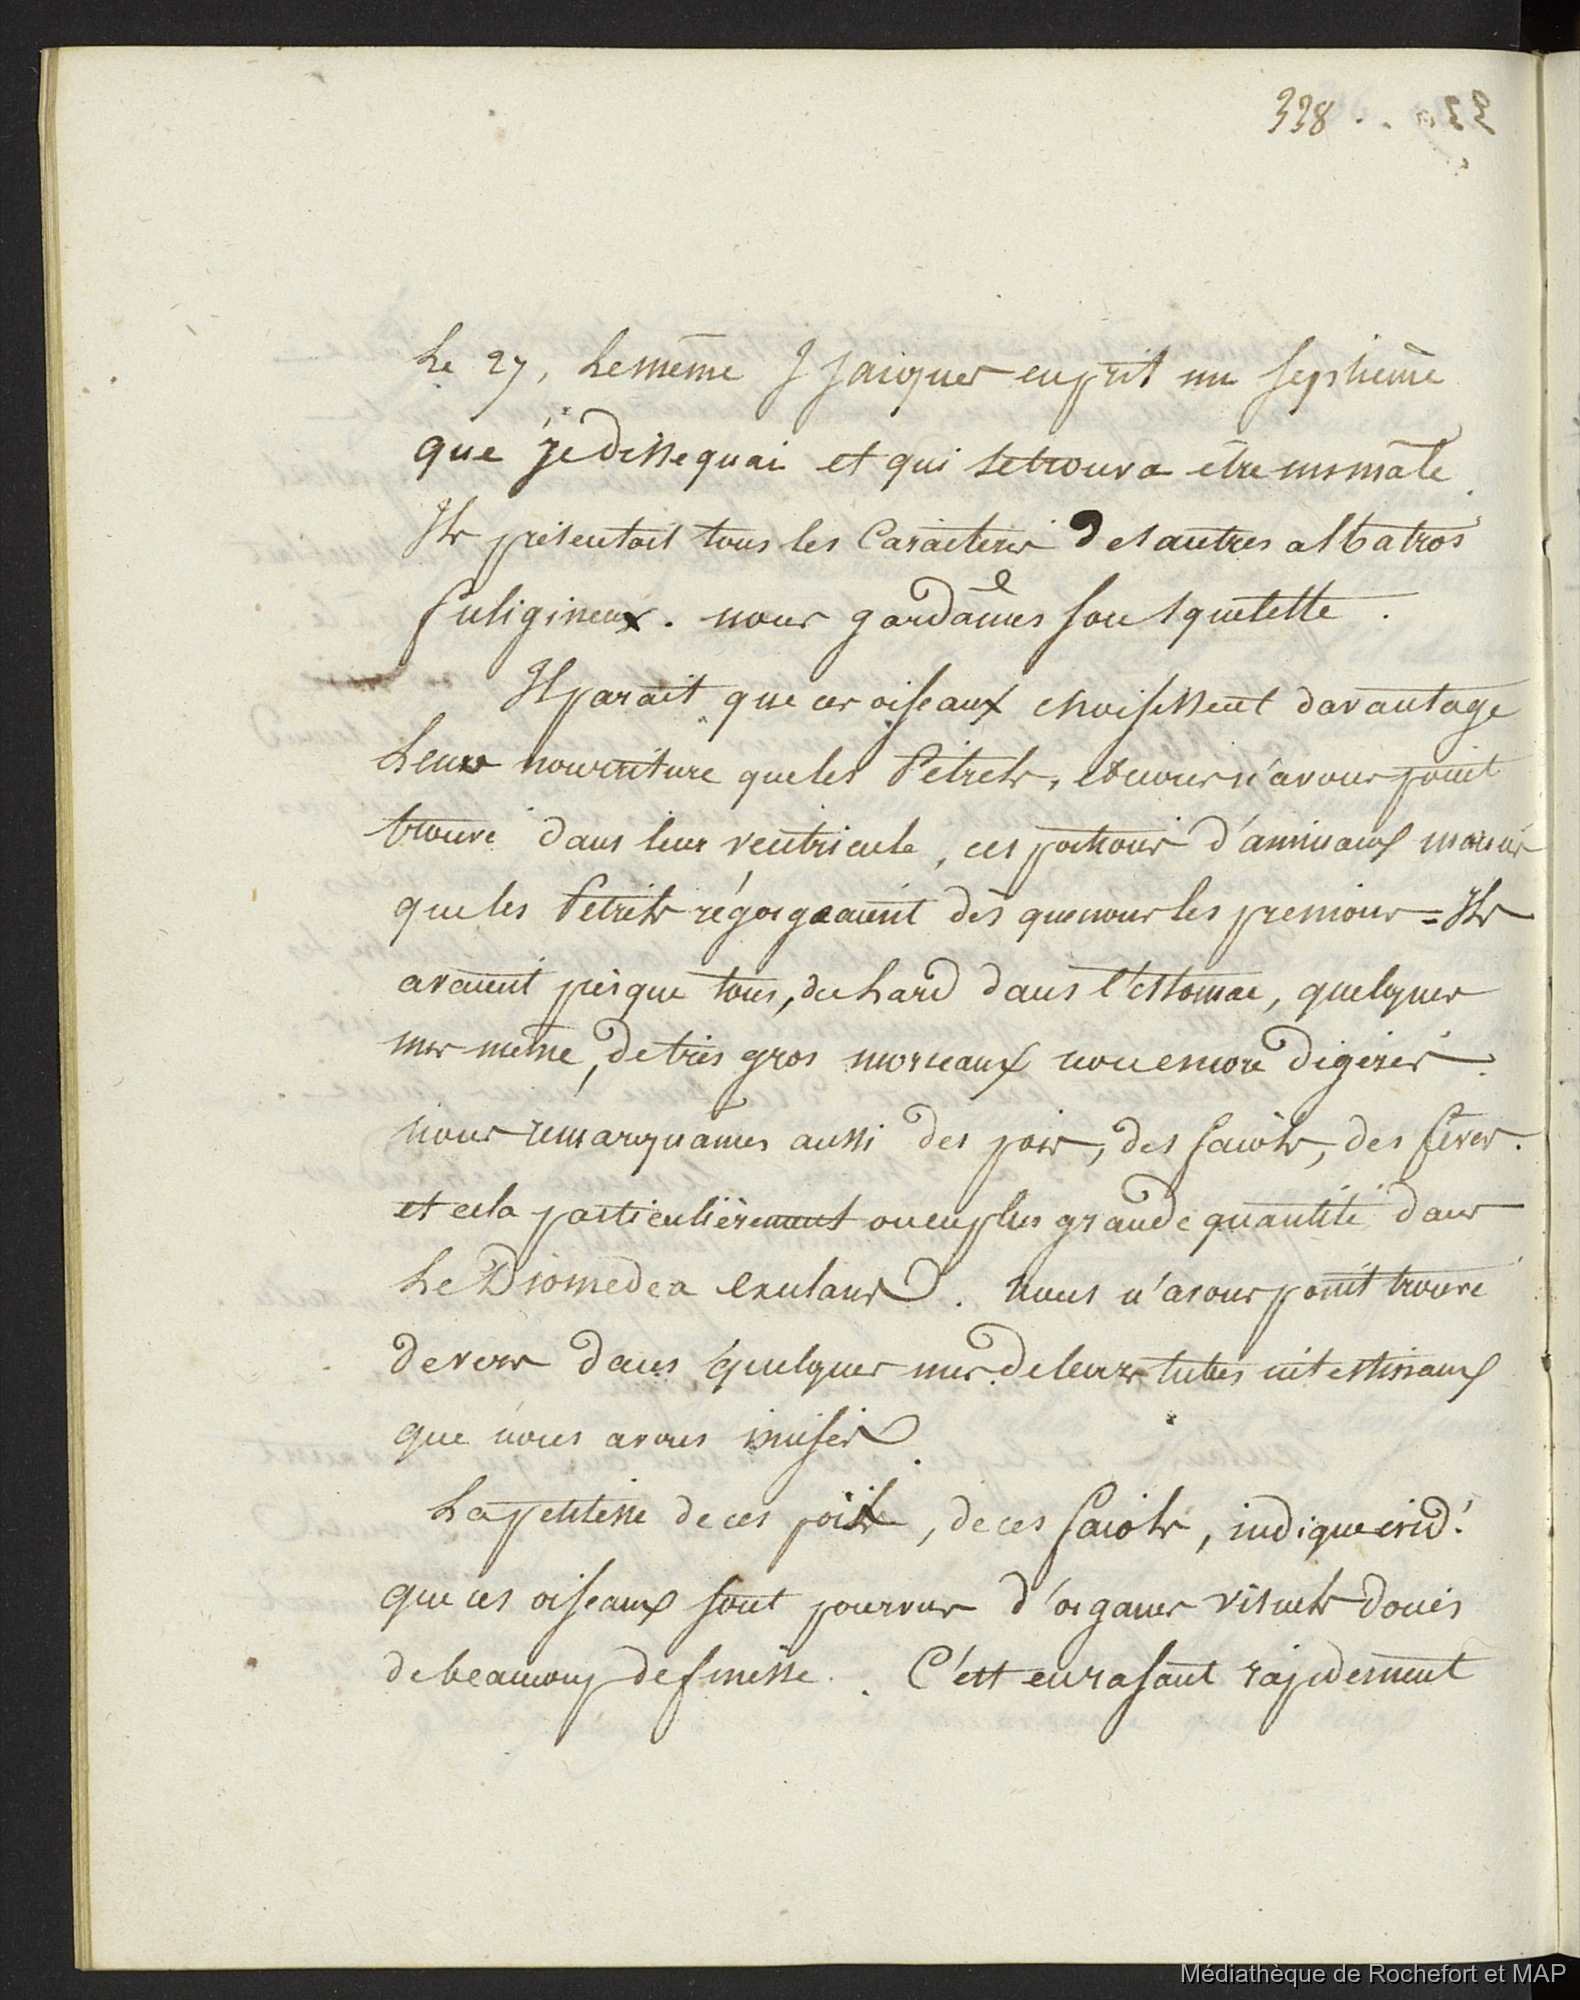 338 . .
Le 27, le même J Jacques en prit un septième
que je disséquai et qui se trouva être un mâle.
Il présentait tous les Caractères des autres albatros
fuligineux. nous gardâmes son squelette.
Il parait que ces oiseaux choisissent davantage
leur nourriture que les Pétrels, et nous n'avons point
trouvé dans leur ventricule, ces portions d'animaux marins
que les Pétrels régorgeaient dès que nous les prenions = Ils
avaient presque tous, du Lard dans l'estomac, quelques
uns même, de très gros morceaux non encore digérés.
nous remarquâmes aussi des pois, des faiols, des fèves.
et cela particulièrement ou en plus grande quantité dans
Le Diomedea Exulans. nous n'avons point trouvé
de vers dans quelques uns de leurs tubes intestinaux
que nous avons incisés.
La petitesse de ces pois, de ces faiols, indique évid.t
que ces oiseaux sont pourvus d'organes visuels doués
de beaucoup de finesse. C'est en rasant rapidement
Médiathèque de Rochefort et MAP